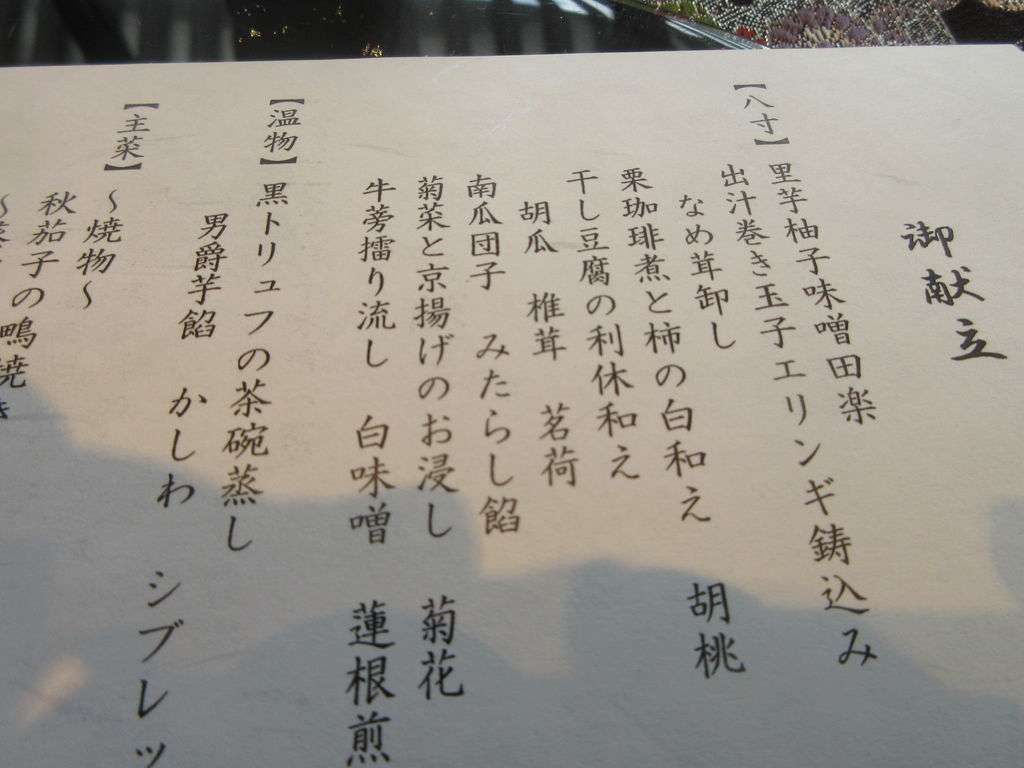 御献立
【八寸】 里芋柚子味噌田楽
出汁巻き玉子エリンギ鋳込み
なめ茸卸し
栗珈琲煮と柿の白和え 胡桃
干し豆腐の利休和え
胡瓜 椎茸 茗荷
南瓜団子 みたらし餡
菊菜と京揚げのお浸し 菊花
牛蒡擂り流し 白味噌 蓮根煎
【温物】 黒トリュフの茶碗蒸し
男爵芋餡 かしわ シブレッ
【主菜】 ～焼物～
秋茄子の鴫焼き